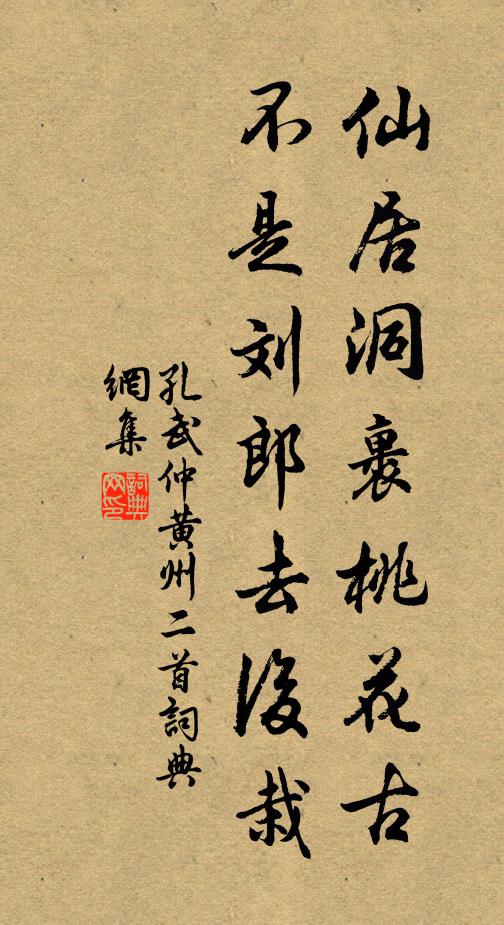 仙居洞裏桃花古
不是刘郎去後栽
孔武仲黄州二首詞典
網集
詞典
网印